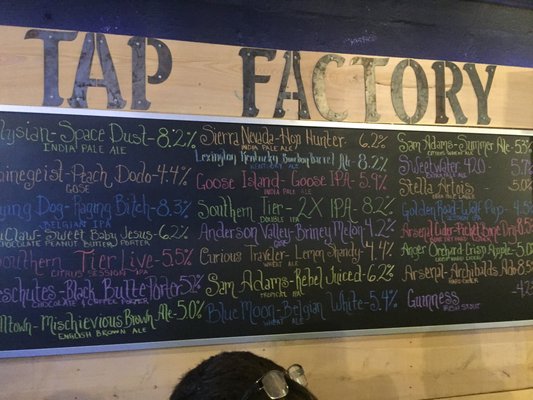 TAP FACTORY
lysian-Space Dust-8.2%
INDIA PALE ALE
hinegeist-Peach Dodo-4.4%
GOSE
ying Dog-Raging Bitch-8.3%
BELGIAN IPA
uClaw-Sweet Baby Jesus-6.2%
CHOCOLATE PEANUT BUTTER PORTER
outhern Tier Live-5.5%
CITRUS SESSION IPA
eschutes-Black Butte Porter 5.2%
CHOCOLATE & COFFEE PORTER
town-Mischievious Brown Ale-5.0%
ENGLISH BROWN ALE
Sierra Nevada-Hop Hunter 6.2%
INDIA PALE ALE
Lexington Kentucky Bourbon Barrel Ale-8.2%
Goose Island-Goose IPA-5.9%
INDIA PALE ALE
Southern Tier-2X IPA-8.2%
DOUBLE IPA
Anderson Valley-Briney Melon-4.2%
GOSE
Curious Traveler-Lemon Shandy-4.4%
WHEAT ALE
Sam Adams-Rebel Juiced-6.2%
TROPICAL IPA
Blue Moon-Belgian White-5.4%
WHEAT ALE
Sam Adams-Summer Ale-5.3%
CITRUS WHEAT ALE
Sweetwater 420 5.7%
Stella Artois 5.0%
Golden Road Wolf Pup-4.5%
Angry Orchard Crisp Apple-5.0%
HARD CIDER
Guinness 4.2